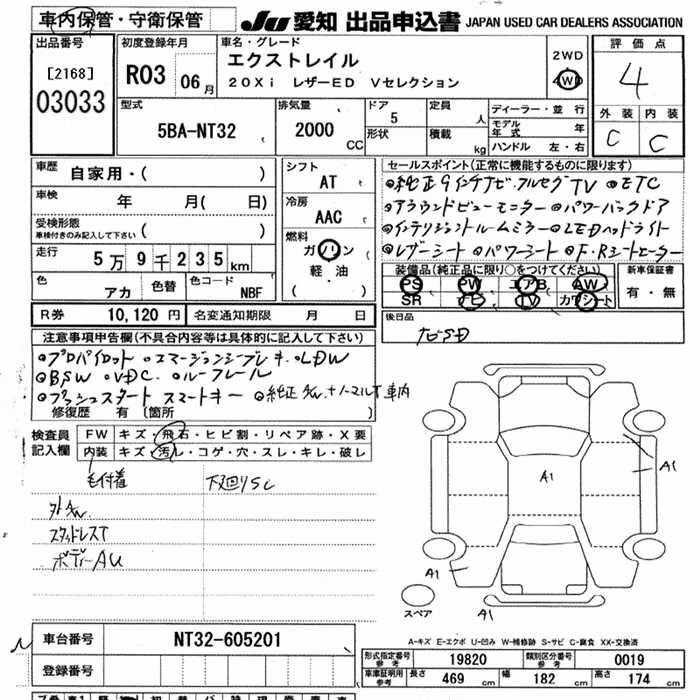 車内保管・守衛保管
JU 愛知 出品申込書 JAPAN USED CAR DEALERS ASSOCIATION
出品番号 初度登録年月 車名・グレード 評価点
[2168] R03 06月 エクストレイル 2WD 4
03033 20Xi レザーED Vセレクション 4WD
型式 排気量 ドア 定員 ディーラー・並行 外装 内装
5BA-NT32 2000 CC 5 人 モデル年式 年 C C
形状 積載 kg ハンドル 左・右
車歴 自家用・( ) シフト AT セールスポイント(正常に機能するものに限ります)
車検 年 月( 日) 冷房 AAC ●純正9インチナビ・フルセグTV ●ETC
受検形態 ( ) ●アラウンドビューモニター ●パワーバックドア
車検付きのみ記入して下さい 燃料 ●インテリジントルームミラー ●LEDヘッドライト
走行 5万9千235km ガソリン ●レザーシート ●パワーシート ●F・Rシートヒーター
色 アカ 色替 色コード NBF 軽油 ( ) 装備品(純正品に限り○をつけてください) 新車保証書
PS PW エアB AW 有・無
SR ナビ TV カワシート
R券 10,120円 名変通知期限 月 日 後日品
注意事項申告欄(不具合内容等は具体的に記入して下さい) ナビSD
●プロパイロット ●エマージェンシーブレーキ ●LDW
●BSW ●VDC ●ルーフレール
●プッシュスタート スマートキー ●純正 +ノーマルT 車内
修復歴 有 〔箇所 〕
検査員 FW キズ・飛石・ヒビ割・リペア跡・X要
記入欄 内装 キズ・汚れ・コゲ・穴・スレ・キレ・破レ
毛付着 下回りSC
スタッドレスT
ボディーAU
A1
A1
A1
A1
スペア
A-キズ E-エクボ U-凹み W-補修跡 S-サビ C-腐食 XX-交換済
車台番号 NT32-605201
登録番号
形式指定番号 参考 19820 類別区分番号 参考 0019
車庫証明記入欄 参考 長さ 469cm 幅 182cm 高さ 174cm